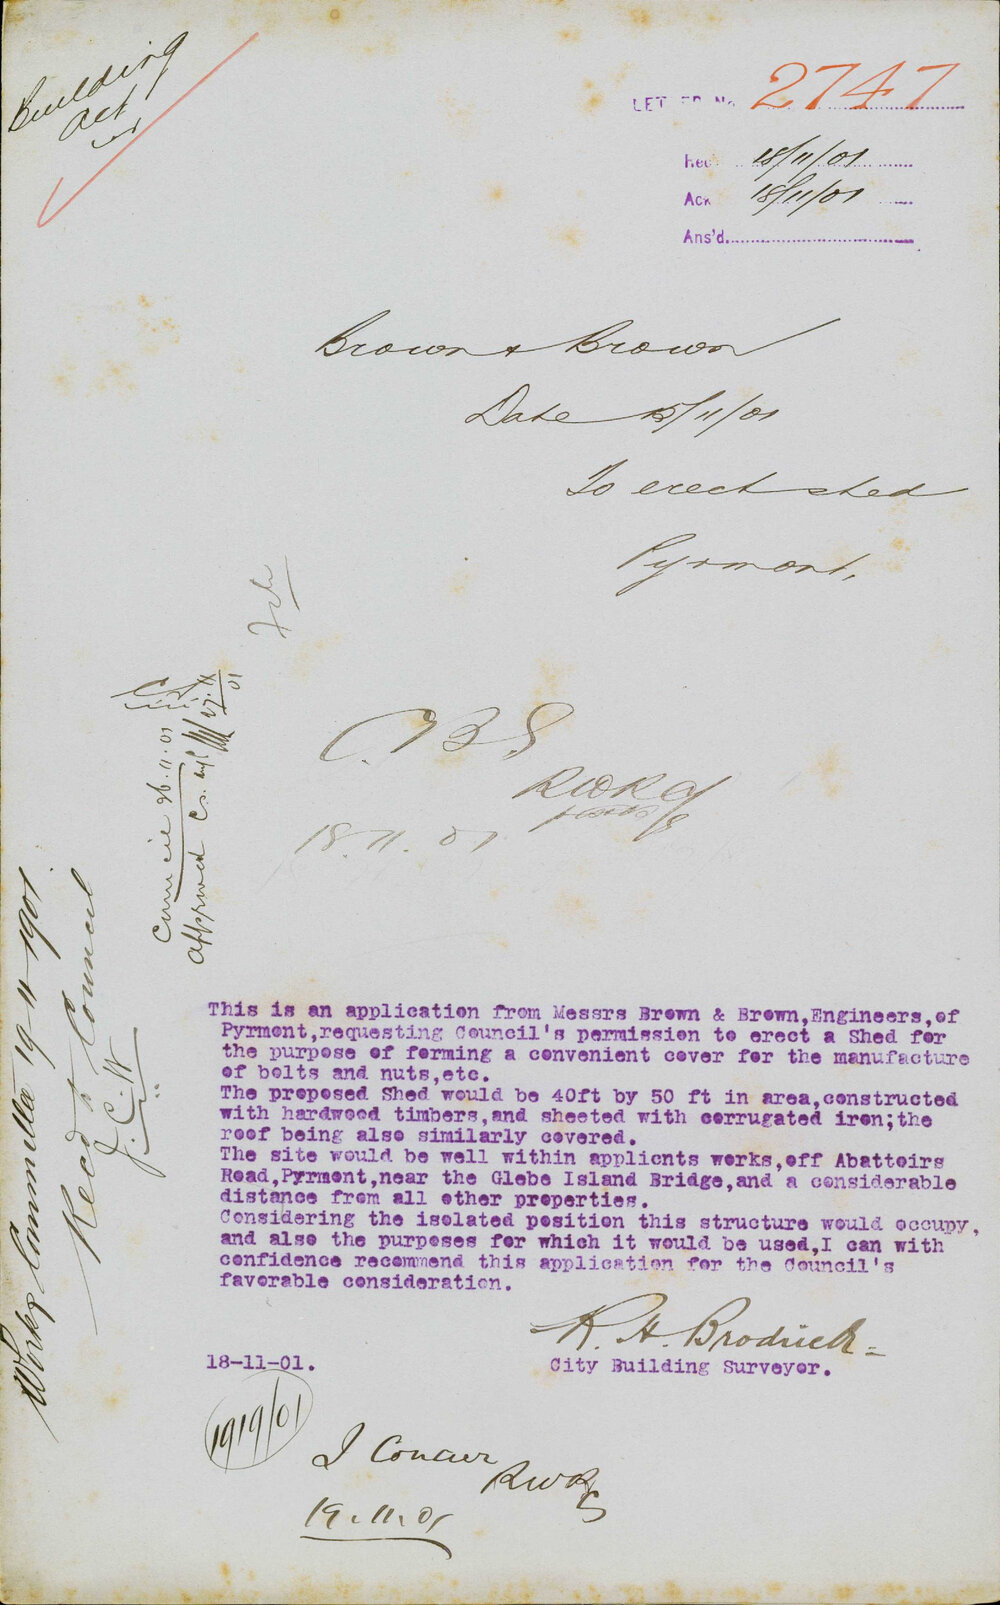 Building
Act
LETTER No. 2747
Rec 18/11/01
Ack 18/11/01
Ans'd
Brown & Brown
Date 15/11/01
To erect shed
Pyrmont.
C.B.S
18.11.01
Council 26.11.01
Approved
27.11.01
Works Committee 19 11 1901.
Recd to Council
This is an application from Messrs Brown & Brown,Engineers,of
Pyrmont,requesting Council's permission to erect a Shed for
the purpose of forming a convenient cover for the manufacture
of bolts and nuts,etc.
The proposed Shed would be 40ft by 50 ft in area,constructed
with hardwood timbers,and sheeted with corrugated iron;the
roof being also similarly covered.
The site would be well within applicnts works,off Abattoirs
Road,Pyrmont,near the Glebe Island Bridge,and a considerable
distance from all other properties.
Considering the isolated position this structure would occupy,
and also the purposes for which it would be used,I can with
confidence recommend this application for the Council's
favorable consideration.
R. H. Brodrick
18-11-01.
City Building Surveyor.
1919/01
I Concur
19.11.01